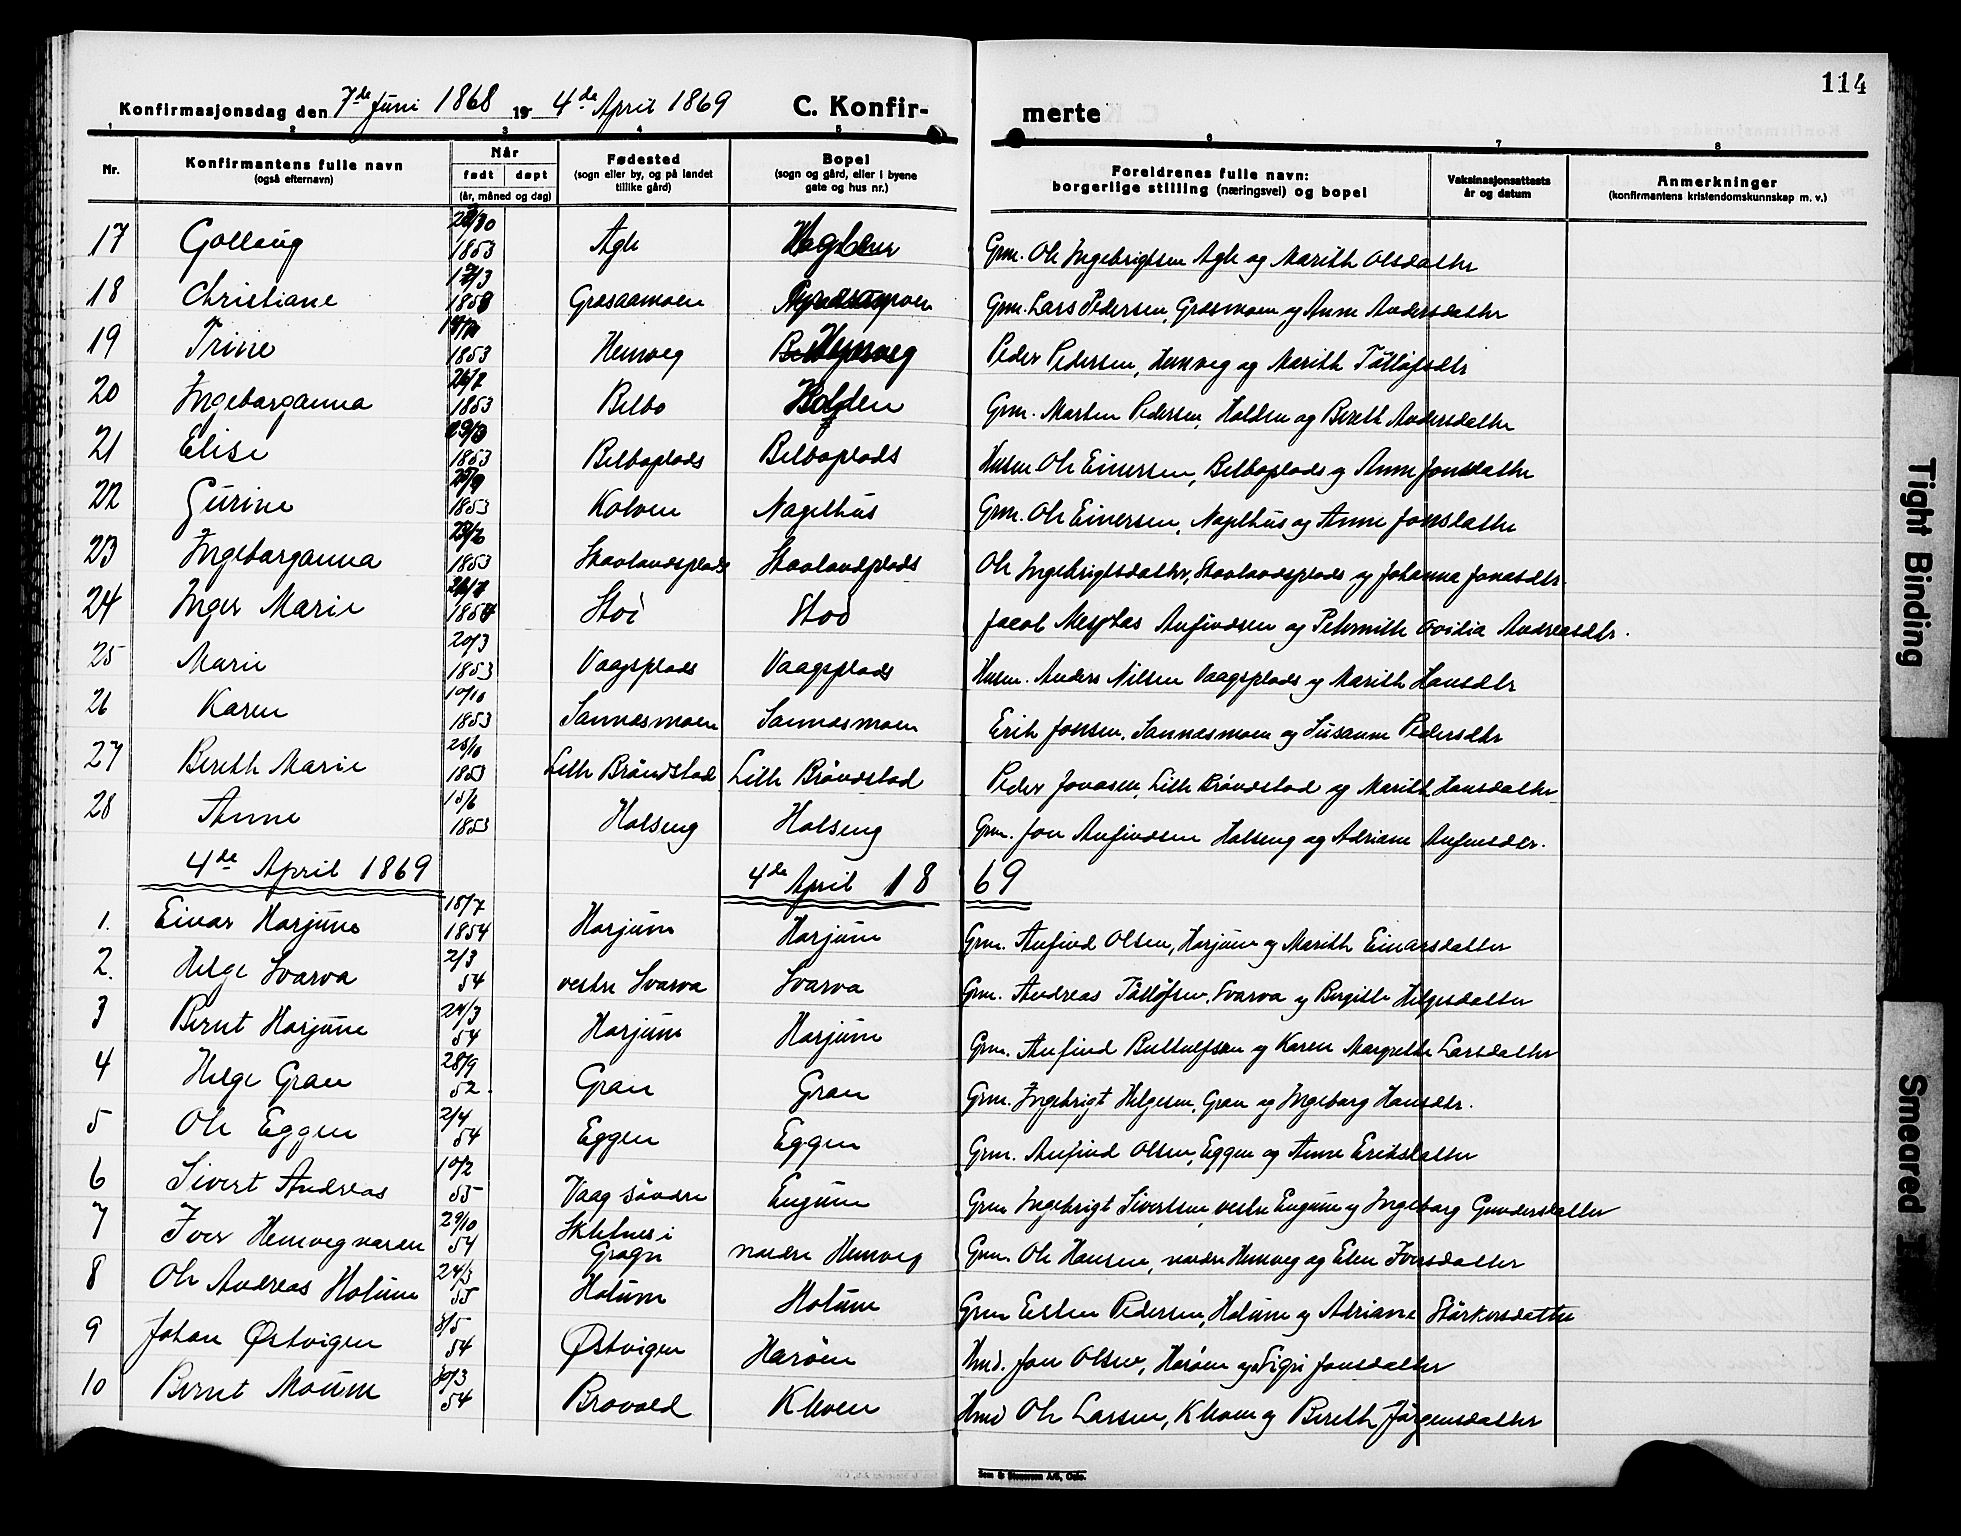 114
Konfirmasjonsdag den 7de Juni 1868 19 4de April 1869 C. Konfirmerte
1 2 3 4 5 6 7 8
Nr. Konfirmantens fulle navn (også efternavn) Når født døpt (år, måned og dag) Fødested (sogn eller by, og på landet tillike gård) Bopel (sogn og gård, eller i byene gate og hus nr.) Foreldrenes fulle navn: borgerlige stilling (næringsvei) og bopel Vaksinasjonsattests år og datum Anmerkninger (konfirmantens kristendomskunnskap m. v.)
17 Gollaug 1853 Agle Grm. Ole Ingebrigtsen Agle og Marith Olsdatter
18 Christiane Græsaamoen Grm. Lars Pedersen, Græsmoen og Anne Andersdatter
19 Trine 1853 Hemveg Hemveg Peder Pedersen, Hemveg og Marith Tølløfsdtr
20 Ingebarganna 26/7 1853 Belbo Holden Grm. Morten Pedersen, Holden og Bereth Andersdatter
21 Elise 1853 Belboplads Belboplads Husm. Ole Einersen, Belboplads og Anne Jonsdatter
22 Gurine 1853 Kolven Nagelhus Grm. Ole Einersen, Nagelhus og Anne Jonsdatter
23 Ingebarganna 1853 Stavlandsplads Stavlandplads Ole Ingebrigtsdatter, Stavlandsplads og Johanna Jonasdtr.
24 Inger Marie 1854 Stod Jacob Anfindsen og Peternille Andreasdtr.
25 Marie 20/3 1853 Vaagsplads Vaagsplads Husm. Anders Nilsen Vaagsplads og Marith Hansdtr
26 Karen 10/10 1853 Sannæsmoen Sannæsmoen Erik Jonsen, Sannæsmoen og Susanne Pedersdtr
27 Bereth Marie 25/10 1853 Lille Brøndstad Lille Brøndstad Peder Jonasen, Lille Brøndstad og Marith Hansdatter
28 Anne 15/6 1853 Halseng Halseng Grm. Jon Anfindsen Halseng og Adriane Anfinsdtr.
4de April 1869 4de April 1869
1. Einar Harjum 18/7 1854 Harjum Harjum Grm. Anfind Olsen, Harjum og Marith Einarsdatter
2. Helge Svarva 2/3 54 vestre Svarva Svarva Grm. Andreas Tølløfsen, Svarva og Birgitte Helgesdatter
3 Bernt Harjum 24/3 54 Harjum Harjum Grm. Anfind Bottolfsen og Karen Margrethe Larsdatter
4 Helge Gran 28/9 52 Gran Gran Grm. Ingebrigt Helgesen, Gran og Ingeborg Hansdtr.
5 Ole Eggen 2/4 54 Eggen Eggen Grm. Anfind Olsen, Eggen og Anne Eriksdatter
6 Sivert Andreas 10/2 55 Vaag søndre Eugum Grm Ingebrigt Sivertsen, vestre Eugum og Ingeborg Gundersdatter
7 Iver Hemveg 29/10 54 Skletnes i Grogn nordre Hemveg Grm. Ole Hansen, nordre Hemveg og Elen Iversdatter
8 Ole Andreas Holum 24/3 55 Holum Holum Grm Esten Pedersen, Holum og Adriane Størkersdatter
9 Johan Østvigen 8/5 54 Østvigen Harøen Hmd. Jon Olsen, Harøen og Sigri Jonsdatter
10 Bernt Moum 30/3 54 Bravold Kleven Hmd Ole Larsen, Kleven og Bereth Jørgensdatter
Sem & Stenersen A/S, Oslo.
Tight Binding
Smeared I